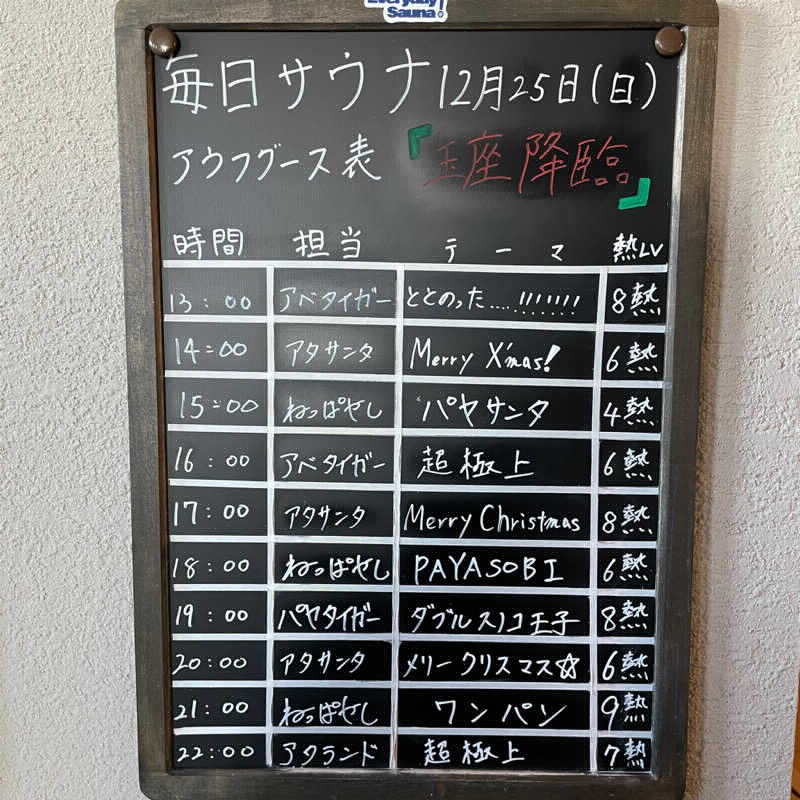 Everyday
Sauna!
毎日サウナ 12月25日(日)
アウフグース表 『玉座降臨』
時間 担当 テーマ 熱LV
13:00 アベタイガー ととのった....!!!!!!! 8熱
14:00 アタサンタ Merry X'mas! 6熱
15:00 ねっぱやし パヤサンタ 4熱
16:00 アベタイガー 超極上 6熱
17:00 アタサンタ Merry Christmas 8熱
18:00 ねっぱやし PAYASOBI 6熱
19:00 パヤタイガー ダブルスノコ王子 8熱
20:00 アタサンタ メリークリスマス☆ 6熱
21:00 ねっぱやし ワンパン 9熱
22:00 アタランド 超極上 7熱